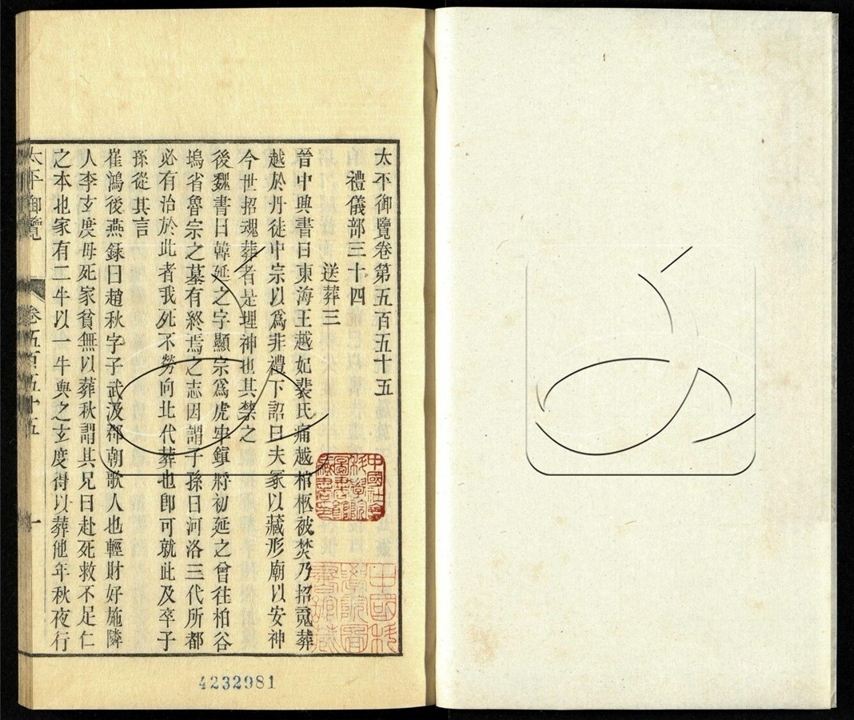 太平御覽卷第五百五十五
禮儀部三十四
送葬三
晉中興書曰東海王越妃裴氏痛越棺柩被焚乃招䰟葬
越於丹徒中宗以爲非禮下詔曰夫冢以藏形廟以安神
今世招魂葬者是埋神也其禁之
後魏書曰韓延之字顯宗爲虎牢鎮將初延之曾往柏谷
塢省魯宗之墓有終焉之志因謂子孫曰河洛三代所都
必有治於此者我死不勞向北代葬也卽可就此及卒子
孫從其言
崔鴻後燕錄曰趙秋字子武汲郡朝歌人也輕財好施隣
人李玄度母死家貧無以葬秋謂其兄曰赴死救不足仁
之本也家有二牛以一牛與之玄度得以葬他年秋夜行
太平御覽
卷五百五十五
一
4232981